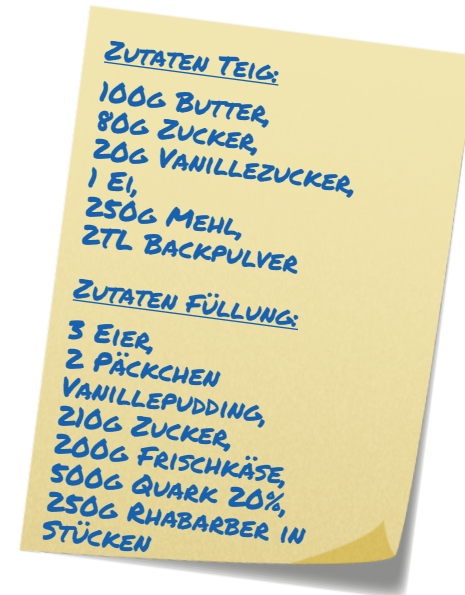 Zutaten Teig:
100g Butter,
80g Zucker,
20g Vanillezucker,
1 Ei,
250g Mehl,
2TL Backpulver
Zutaten Füllung:
3 Eier,
2 Päckchen
Vanillepudding,
210g Zucker,
200g Frischkäse,
500g Quark 20%,
250g Rhabarber in
Stücken